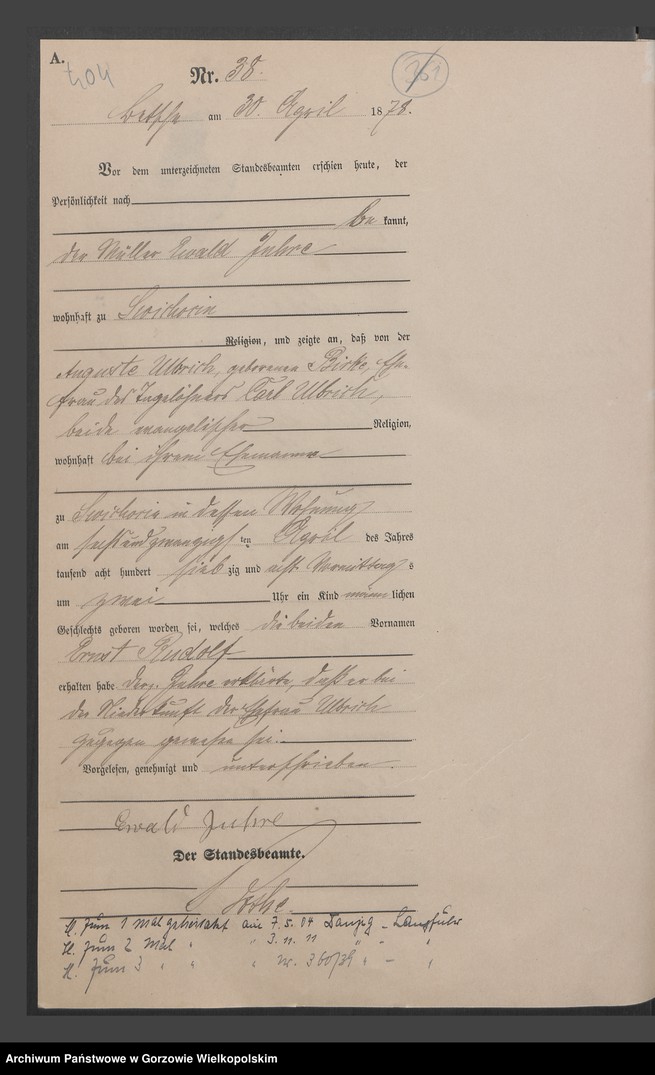 A.
404
Nr. 38.
361
Betsche am 30. April 1878.
Vor dem unterzeichneten Standesbeamten erschien heute, der
Persönlichkeit nach
be kannt,
der Müller Ewald Juhre
wohnhaft zu
Religion, und zeigte an, daß von der
Auguste Ulbrich, geborenen Birke, Ehe-
frau des Tagelöhners Carl Ulbrich,
beide evangelischer Religion,
wohnhaft bei ihrem Ehemanne
zu in dessen Wohnung
am sechsundzwanzigsten April des Jahres
tausend acht hundert siebzig und acht Vormittags
um zwei Uhr ein Kind männlichen
Geschlechts geboren worden sei, welches die beiden Vornamen
Ernst Rudolf
erhalten habe. Der p. Juhre erklärte, daß er bei
der Niederkunft der Ehefrau Ulbrich
zugegen gewesen sei.
Vorgelesen, genehmigt und unterschrieben.
Ewald Juhre
Der Standesbeamte.
H. Zum 1 Mal geheiratet am 7.5.04 Danzig - Langfuhr
H. Zum 2 Mal " " 3.11.11 " - "
H. Zum 3 " " " Nr. " - "
Archiwum Państwowe w Gorzowie Wielkopolskim